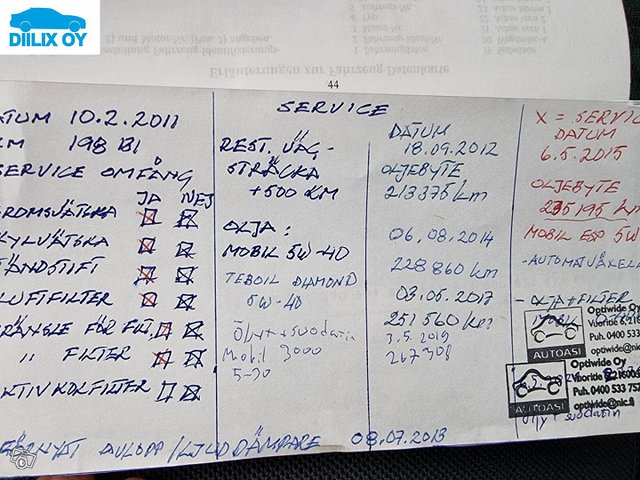 DIILIX OY
Erläuterungen zur Fahrzeug-Datenkarte
44
DATUM 10.2.2011
KM 198 181
SERVICE OMFÅNG
JA NEJ
BROMSVÄTSKA
KYLVÄTSKA
TÄNDSTIFT
LUFTFILTER
BRÄNSLE FÖR FILT.
" FILTER
AKTIV KOLFILTER
FÖRNYAT AVLOPP / LJUDDÄMPARE 08.07.2013
SERVICE
REST. VÄG-
STRÄCKA
+500 KM
OLJA:
MOBIL 5W-40
TEBOIL DIAMOND
5W-40
Öljyt + suodatin
Mobil 3000
5-30
DATUM
18.09.2012
OLJEBYTE
213375 km
06.08.2014
228 860 km
03.05.2017
251 560 km
3.5.2019
267308
X = SERVICE
DATUM
6.5.2015
OLJEBYTE
235195 km
MOBIL ESP 5W
-AUTOMATVÄXELL
- OLJA + FILTER
Optiwide Oy
Puh. 0400 533
optiwide@nic
AUTOASI
Optiwide Oy
Puh. 0400 533 752
optiwide@nic.fi
AUTOASI
Öljyt suodatin